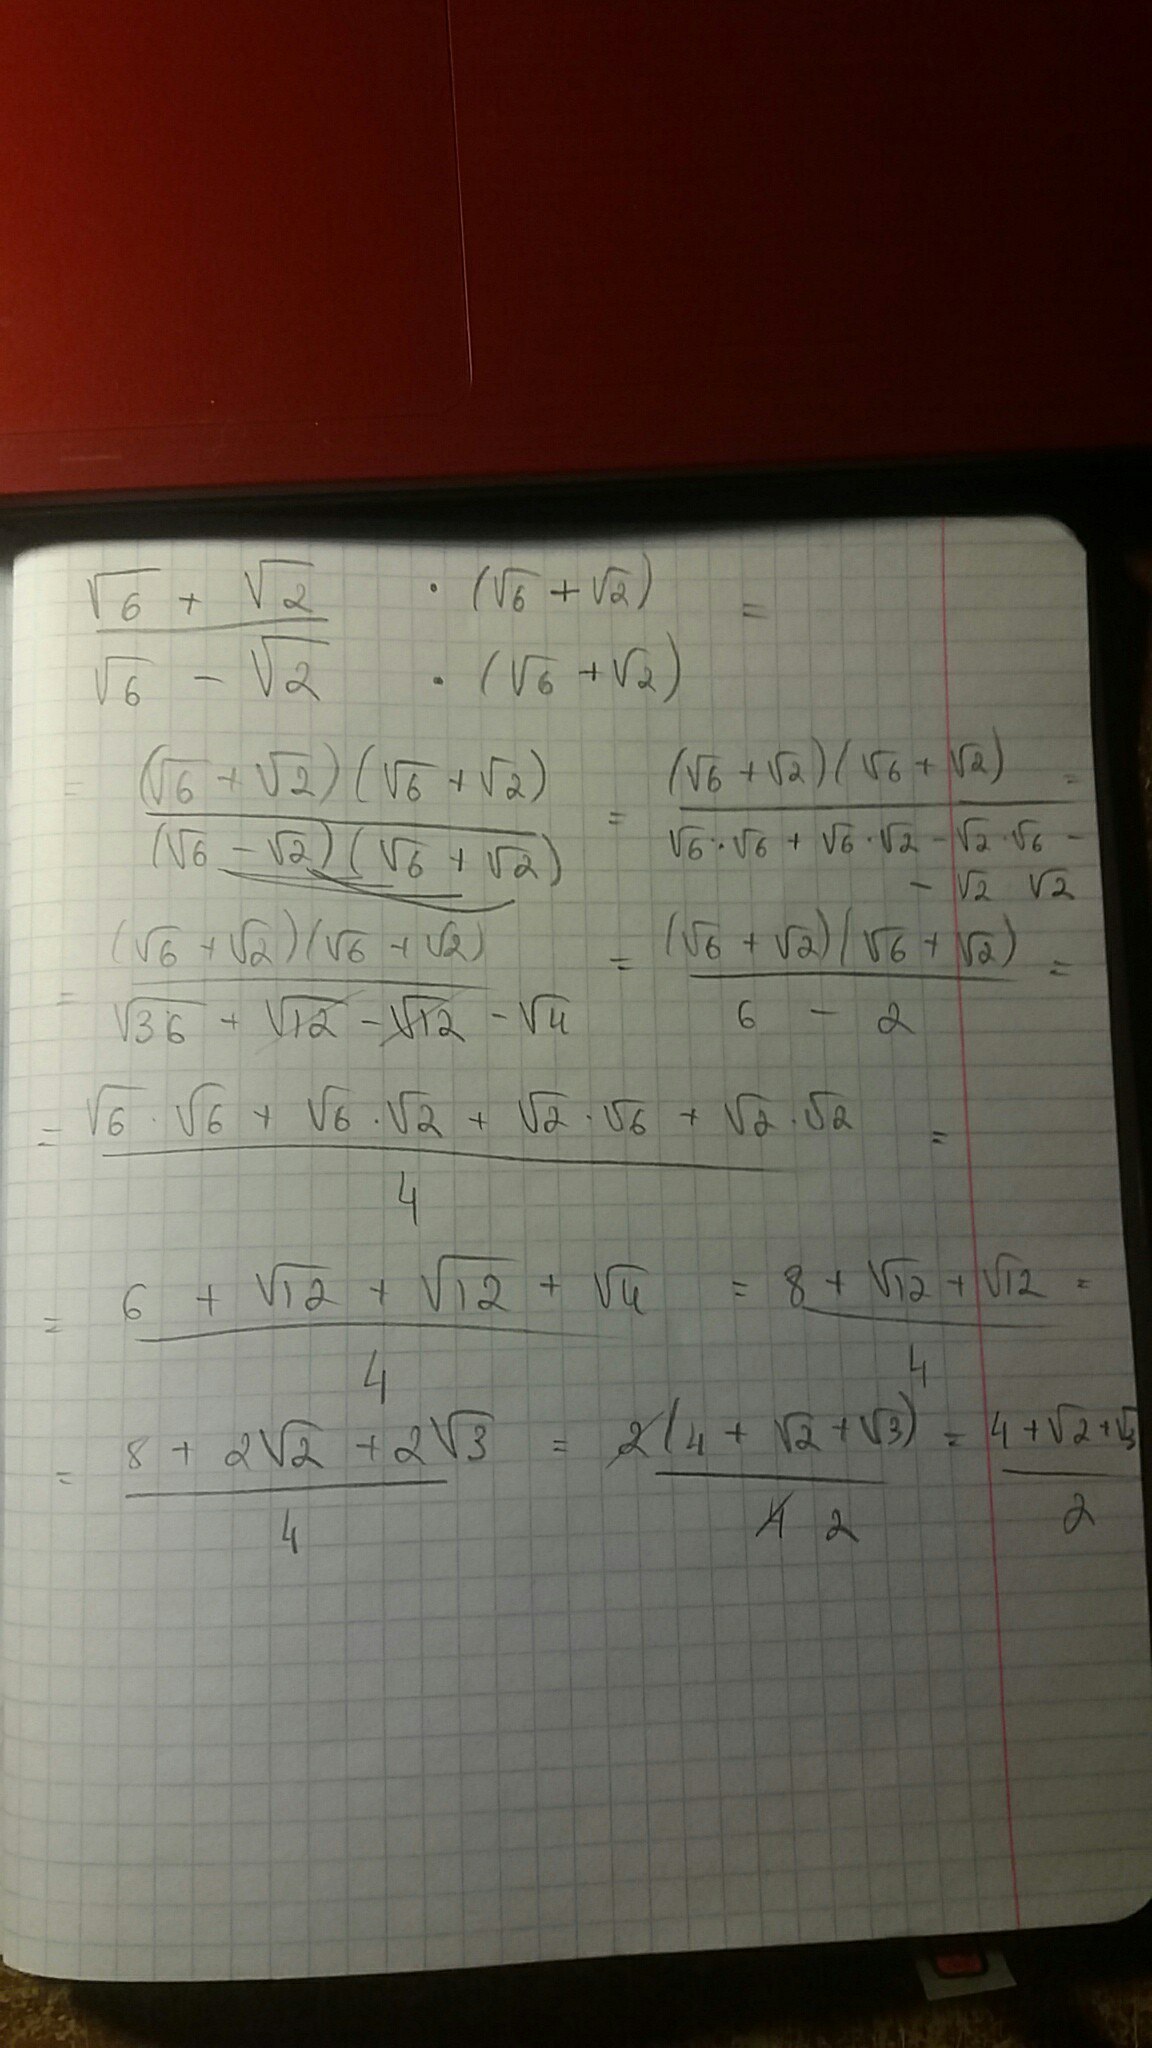 √6 + √2 · (√6 + √2) =
√6 - √2 · (√6 + √2)
= (√6 + √2)(√6 + √2) = (√6 + √2)(√6 + √2) =
(√6 - √2)(√6 + √2) √6·√6 + √6·√2 - √2·√6 -
- √2 √2
= (√6 + √2)(√6 + √2) = (√6 + √2)(√6 + √2) =
√36 + √12 - √12 - √4 6 - 2
= √6·√6 + √6·√2 + √2·√6 + √2·√2 =
4
= 6 + √12 + √12 + √4 = 8 + √12 + √12 =
4 4
= 8 + 2√2 + 2√3 = 2(4 + √2 + √3) = 4 + √2 + √3
4 4 2 2